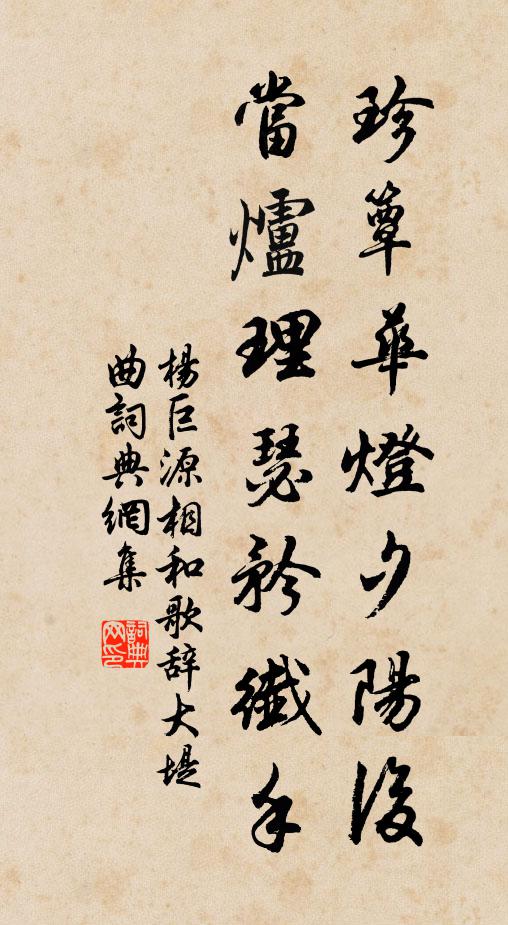 珍簟華燈夕陽後
當爐理瑟矜纖手
楊巨源相和歌辞大堤
曲詞典網集
詞典
网印